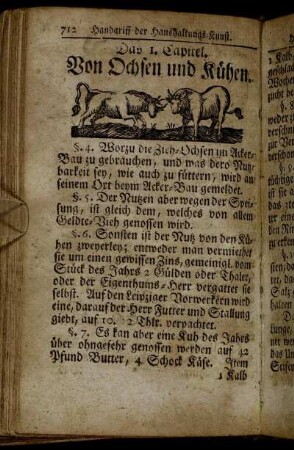 712 Handgriff der Haushaltungs-Kunst.
Das 1. Capitel.
Von Ochsen und Kühen.
§. 4. Worzu die Zieh-Ochsen im Acker-
Bau zu gebrauchen, und was dero Nutz-
barkeit sey, wie auch zu füttern, wird an
seinem Ort beym Acker-Bau gemeldet.
§. 5. Der Nutzen aber wegen der Spei-
sung, ist gleich dem, welches von allem
Geldte-Vieh genossen wird.
§. 6. Sonsten ist der Nutz von den Kü-
hen zweyerley; entweder man vermiethet
sie um einen gewissen Zins, gemeinigl. vom
Stück des Jahrs 2 Gülden oder Thaler,
oder der Eigenthums-Herr vergattet sie
selbst. Auf den Leipziger Vorwerckern wird
eine, darauf der Herr Futter und Stallung
giebt, auf 10. 12 Thlr. verpachtet.
§. 7. Es kan aber eine Kuh des Jahrs
über ohngefehr genossen werden auf 42
Pfund Butter, 4 Schock Käse. Item
1 Kalb